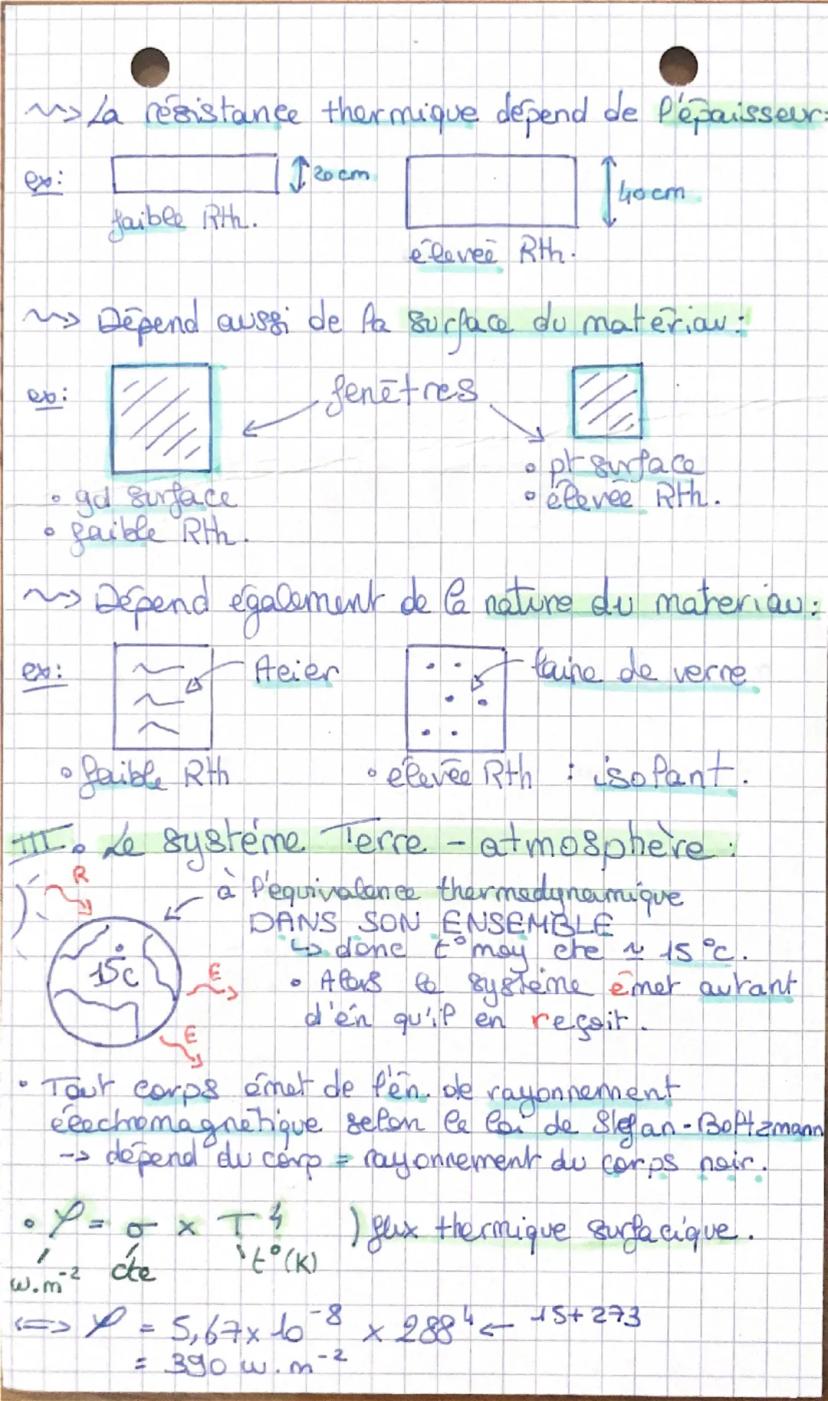 ~~> La résistance thermique dépend de l'épaisseur:
ex: 20cm 40cm
faible Rth. éleveé Rth.
~~> Dépend aussi de la surface du matériau:
ex: fenêtres
• gd surface
• faible Rth.
• pt surface
• élevée Rth.
~~> Dépend également de la nature du materiau:
ex: Acier laine de verre
• faible Rth • élevée Rth : isolant.
III. Le système Terre - atmosphère:
R
à l'équivalence thermodynamique
DANS SON ENSEMBLE
↳ donc t° moy etre ≃ 15 °C.
15°C
E
• Alors le système émet autant
d'én qu'il en reçoit.
E
• Tout corps émet de l'én. de rayonnement
électromagnétique selon la loi de Stefan-Boltzmann
-> dépend du corp = rayonnement du corps noir.
• φ = σ × T⁴ ) flux thermique surfacique.
w.m⁻² cte t°(K)
<=> φ = 5,67 × 10⁻⁸ × 288⁴ ← 15+273
= 390 w.m⁻²